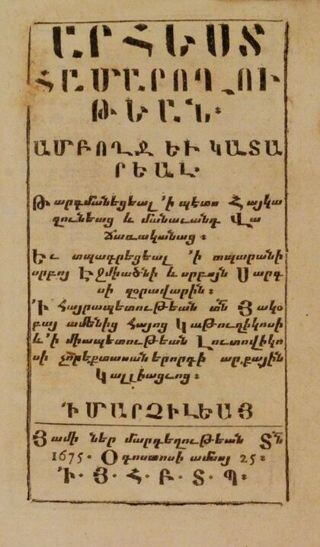 ԱՐՀԵՍՏ
ՀԱՄԱՐՈՂՈՒ
ԹԵԱՆ։
ԱՄԲՈՂՋ ԵՒ ԿԱՏԱ
ՐԵԱԼ։
Թարգմանեցեալ 'ի պետս Հայկա
զունեաց և մանաւանդ Վա
ճառականաց ։
Եւ տպագրեցեալ 'ի տպարանի
սրբոյ Էջմիածնի և սրբոյն Սարգ
սի զօրավարին ։
'Ի Հայրապետութեան տն Յակօ
բայ ամենից Հայոց Կաթուղիկոսի
և 'ի միապետութեան Լուտովիկո
սի չորեքտասաներորդի արքային
Կալլիացւոց ։
'Ի ՄԱՐՉԻԼԵԱՅ
Յամի ներ մարդեղութեան Տն
1675. Օգոստոսի ամսոյ 25 ։
Ի. Յ. Հ. Բ. Տ. Պ ։